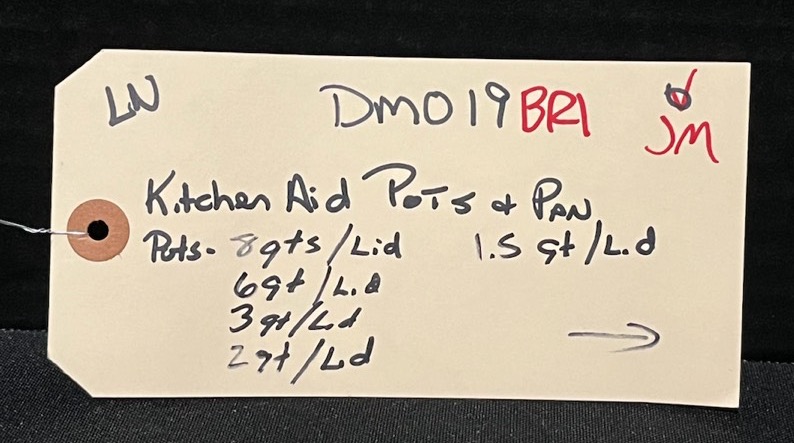 LN DM019 BR1
JM
Kitchen Aid Pots & Pan
Pots- 8qts/Lid 1.5 qt/Lid
6qt/Lid
3qt/Lid
2qt/Lid